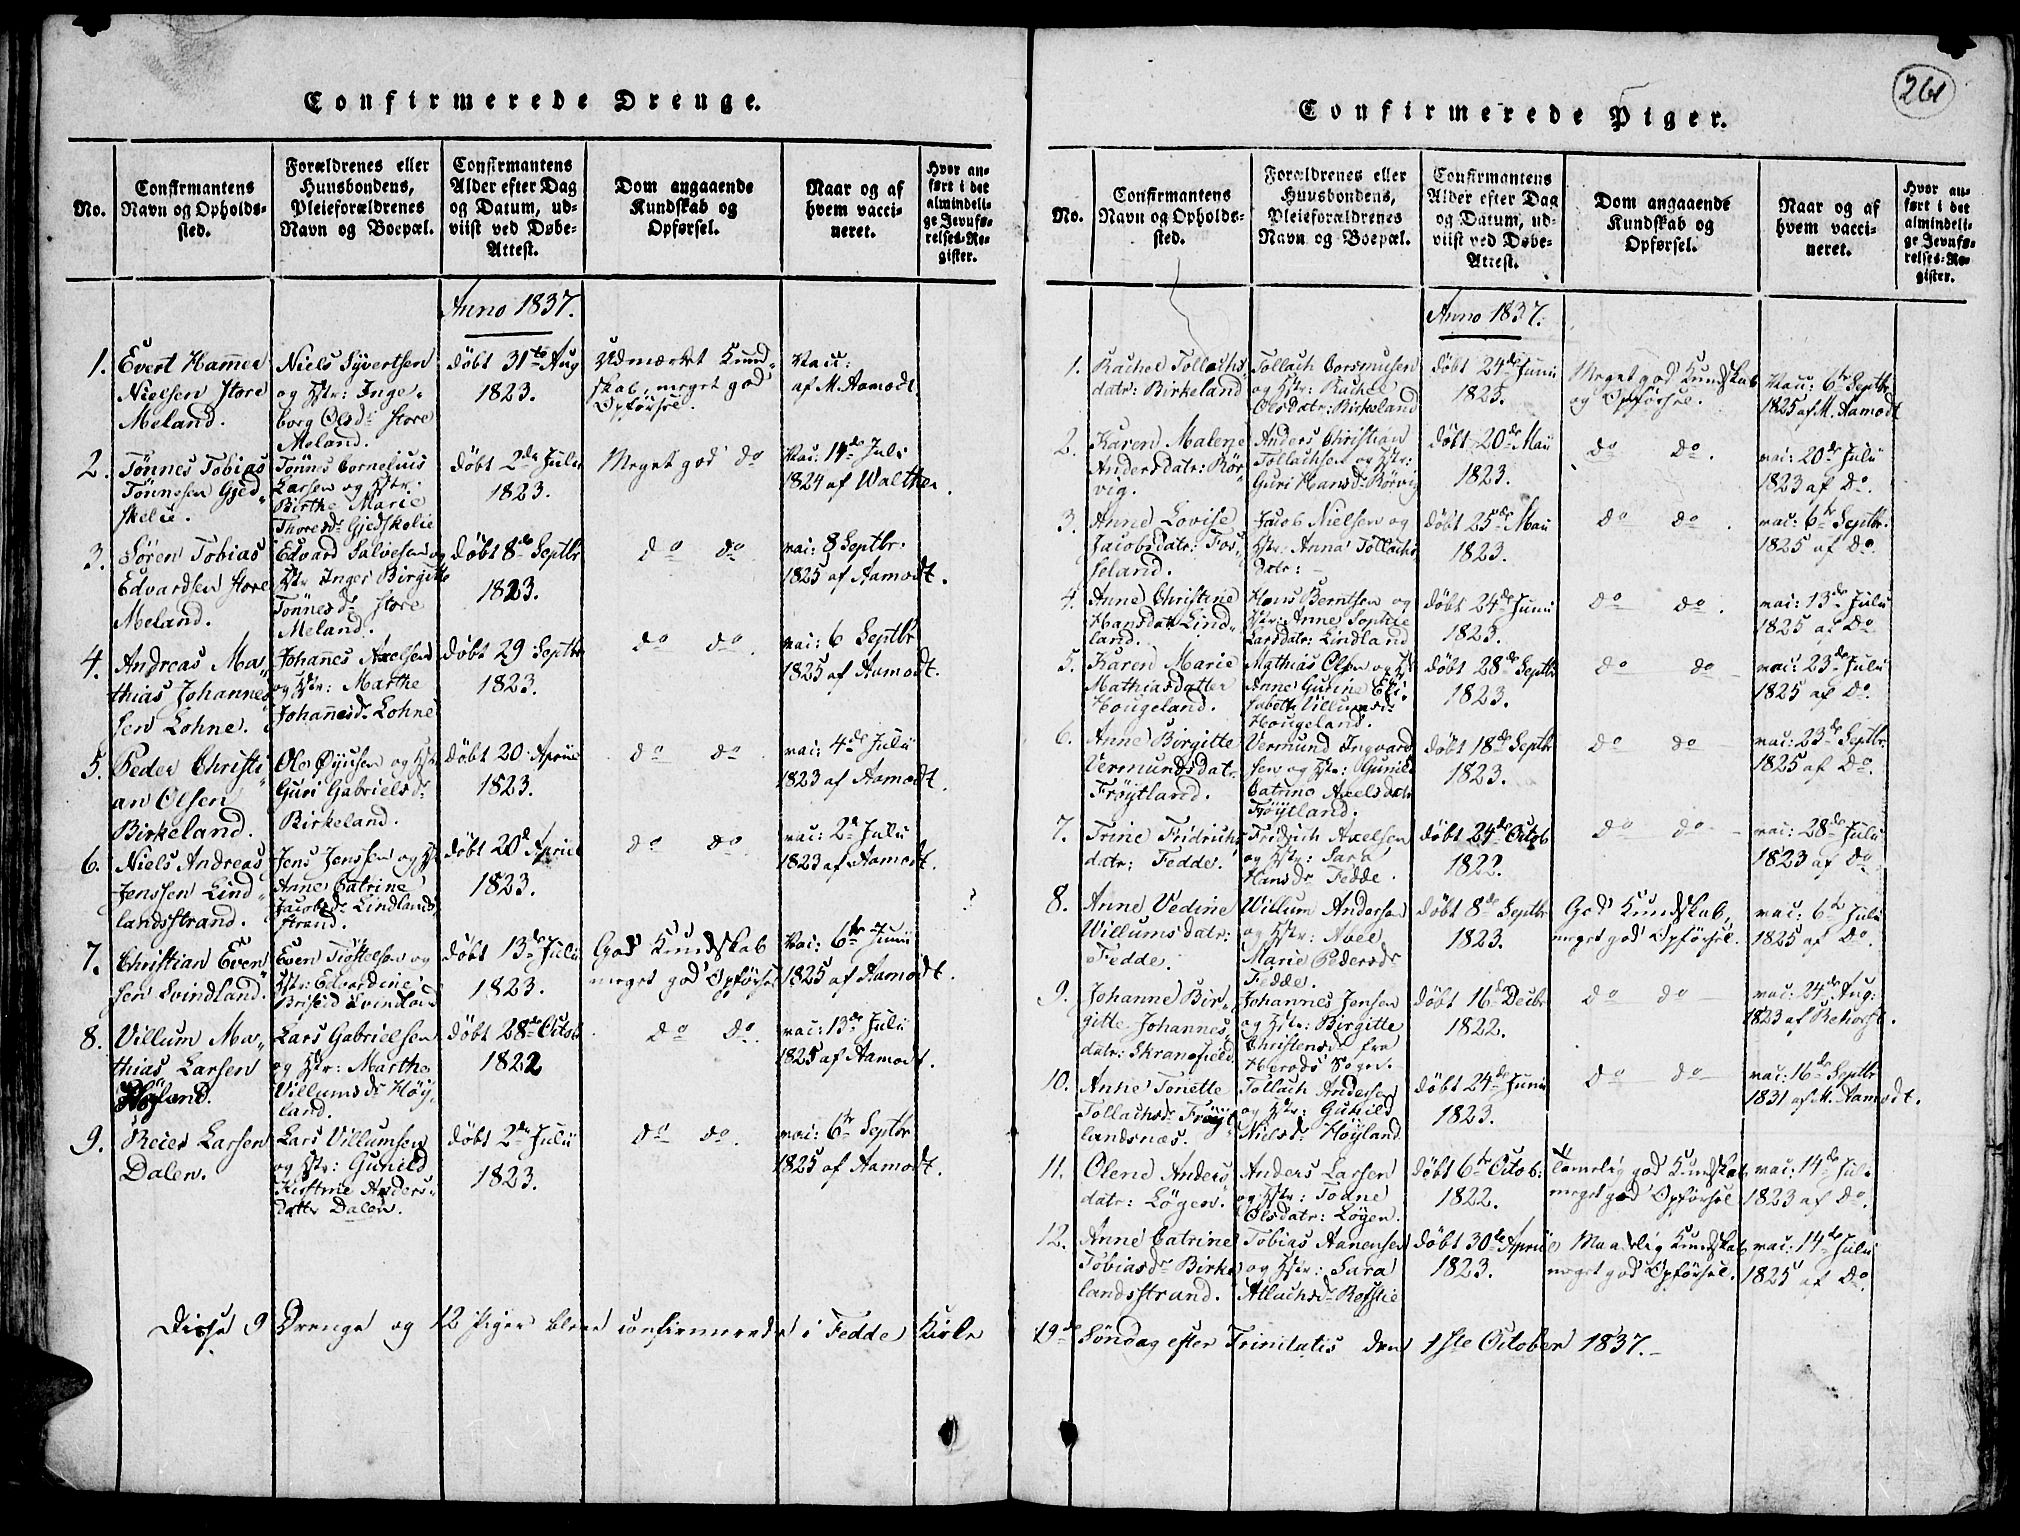 261
Confirmerede Drenge.
No.
Confirmantens
Navn og Opholds-
sted.
Forældrenes eller
Huusbondens,
Pleieforældrenes
Navn og Boepæl.
Confirmantens
Alder efter Dag
og Datum, ud-
viist ved Døbe-
Attest.
Dom angaaende
Kundskab og
Opførsel.
Naar og af
hvem vacci-
neret.
Hvor an-
ført i det
almindeli-
ge Jevnfø-
relses-Re-
gister.
Anno 1837.
1.
Evert Hammer
Nielsen Store
Meland.
Niels Syvertsen
og Hstr: Inge-
borg Olsdr Store
Meland.
døbt 31te Aug
1823.
Udmærket Kund-
skab, meget god
Opførsel.
Vacc:
af M. Aamodt.
2.
Tönnes Tobias
Tönnesen Gjed-
skelie.
Tönnes Cornelius
Larsen og Hstr:
Birthe Marie
Thoresdr Gjedskelie
døbt 2de Julii
1823.
Meget god do
Vac: 14de Juli
1824 af Walther.
3.
Sören Tobias
Edvardsen Store
Meland.
Edvard Salvesen og
Hstr Inger Birgitte
Tönnesdr Store
Meland.
døbt 8de Septbr
1823.
do do
vac: 8 Septbr.
1825 af Aamodt.
4.
Andreas Ma-
thias Johannes
sen Lohne.
Johannes Axelsen
og Hstr: Marthe
Johannesdr Lohne
døbt 29 Septbr
1823.
do do
vac: 6 Septbr
1825 af Aamodt.
5.
Peder Christi
an Olsen
Birkeland.
Ole Øyusen og Hstr
Guri Gabrielsdr
Birkeland.
døbt 20 April
1823.
do do
vac: 4de Julii
1823 af Aamodt.
6.
Niels Andreas
Jenssen Lind-
landsstrand.
Jens Jenssen og Hstr
Anne Catrine
Jacobsdr Lindlands
strand.
døbt 20d April
1823.
do do
vac: 2d Julii
1823 af Aamodt.
?
7.
Christian Even
sen Svindland.
Even Tjöttelsen og
Hstr: Edvardine
Svindland
døbt 13de Julii
1823.
God Kundskab
meget god Opførsel
Vac: 6te Junii
1825 af Aamodt.
8.
Villum Ma-
thias Larsen
Höyland.
Lars Gabrielsen
og Hstr: Marthe
Villumsdr Höy
land.
døbt 28de Octob
1822
do do
vac: 13de Julii
1825 af Aamodt.
9.
Reier Larsen
Dalen.
Lars Villumsen
og Hstr: Gunild
Kirstine Anders-
datter Dalen.
døbt 2de Julii
1823.
do do.
vac: 6te Septbr
1825 af Aamodt.
Confirmerede Piger.
No.
Confirmantens
Navn og Opholds-
sted.
Forældrenes eller
Huusbondens,
Pleieforældrenes
Navn og Boepæl.
Confirmantens
Alder efter Dag
og Datum, ud-
viist ved Døbe-
Attest.
Dom angaaende
Kundskab og
Opførsel.
Naar og af
hvem vacci-
neret.
Hvor an-
ført i det
almindeli-
ge Jevnfø-
relses-Re-
gister.
Anno 1837.
1.
Rachel Tollachs
datr: Birkeland
Tollach Corsmusen
og Hstr: Rachel
Olsdatr: Birkeland
døbt 24de Junii
1823.
Meget god Kundskab
og Opførsel.
Vac: 6te Septbr
1825 af M. Aamodt
2.
Karen Malene
Andersdatr: Rör
vig.
Anders Christian
Tollachsen og Hstr:
Guri Hansdr Rörvig
døbt 20de Maii
1823.
do do.
vac: 20de Julii
1823 af do.
3.
Anne Lovise
Jacobsdatr: Fos-
seland.
Jacob Nielsen og
Hstr: Anna Tollachs
datr: -
døbt 25de Maii
1823.
do do.
vac: 6te Septbr.
1825 af do.
4.
Anne Christine
Hansdatr Lind-
land.
Hans Berntsen og
Hstr: Anne Sophie
Larsdatr: Lindland
døbt 24de Junii
1823.
do do.
vac: 13de Julii
1825 af do
5.
Karen Marie
Mathiasdatter
Hougeland.
Mathias Olsen og Hstr
Anne Gurine Eli-
sabeth Villumsdr
Hougeland.
døbt 28de Septbr
1823.
do do
vac: 23de Julii
1825 af do.
6.
Anne Birgitte
Vermundsdatr
Fröytland.
Vermund Ingvard
sen og Hstr: Gunild
Catrine Axelsdatr
Fröytland.
døbt 18de Septbr
1823.
do do
vac: 23de Septbr.
1825 af do.
7.
Trine Fridrichs
datr: Fedde.
Fridrich Axelsen
og Hstr: Sara
Hansdr Fedde.
døbt 24de Octob
1822.
do do
vac: 28de Julii
1823 af do
8.
Anne Vedine
Willumsdatr:
Fedde.
Willum Andersen
og Hstr: Abel
Marie Pedersdr
Fedde.
døbt 8de Septbr
1823.
God Kundskab,
meget god Opførsel.
vac: 6te Julii
1825 af do.
9.
Johanne Bir-
gitte Johannes
datr: Skranefield
Johannes Jensen
og Hstr: Birgitte
Christensdr fra
Herods Sogn.
døbt 16de Decbr
1822.
do do
vac: 24de Aug:
1823 af Rehorst.
10.
Anne Tonette
Tollachsdr Fröyt
landsnæs.
Tollach Andersen
og Hstr: Gunild
Nielsdr Höyland
døbt 24de Junii
1823.
do do
vac: 16de Septbr
1831 af M. Aamodt.
11.
Olene Anders
datr: Lögen.
Anders Larsen
og Hstr: Tone
Olsdatr: Lögen.
døbt 6te Octob:
1822.
Temelig god Kundskab
meget god Opførsel
vac: 14de Jul.
1823 af do.
12.
Anne Catrine
Tobiasdr Birke
landsstrand.
Tobias Aanensen
og Hstr: Sara
Atlachsdr Röfslie
døbt 30te April
1823.
Maadelig Kundskab
meget god Opførsel.
vac: 14de Julii
1825 af do.
Disse 9 Drenge og 12 Piger bleve confirmerede i Fedde Kirke 19de Søndag efter Trinitatis den 1ste October 1837.